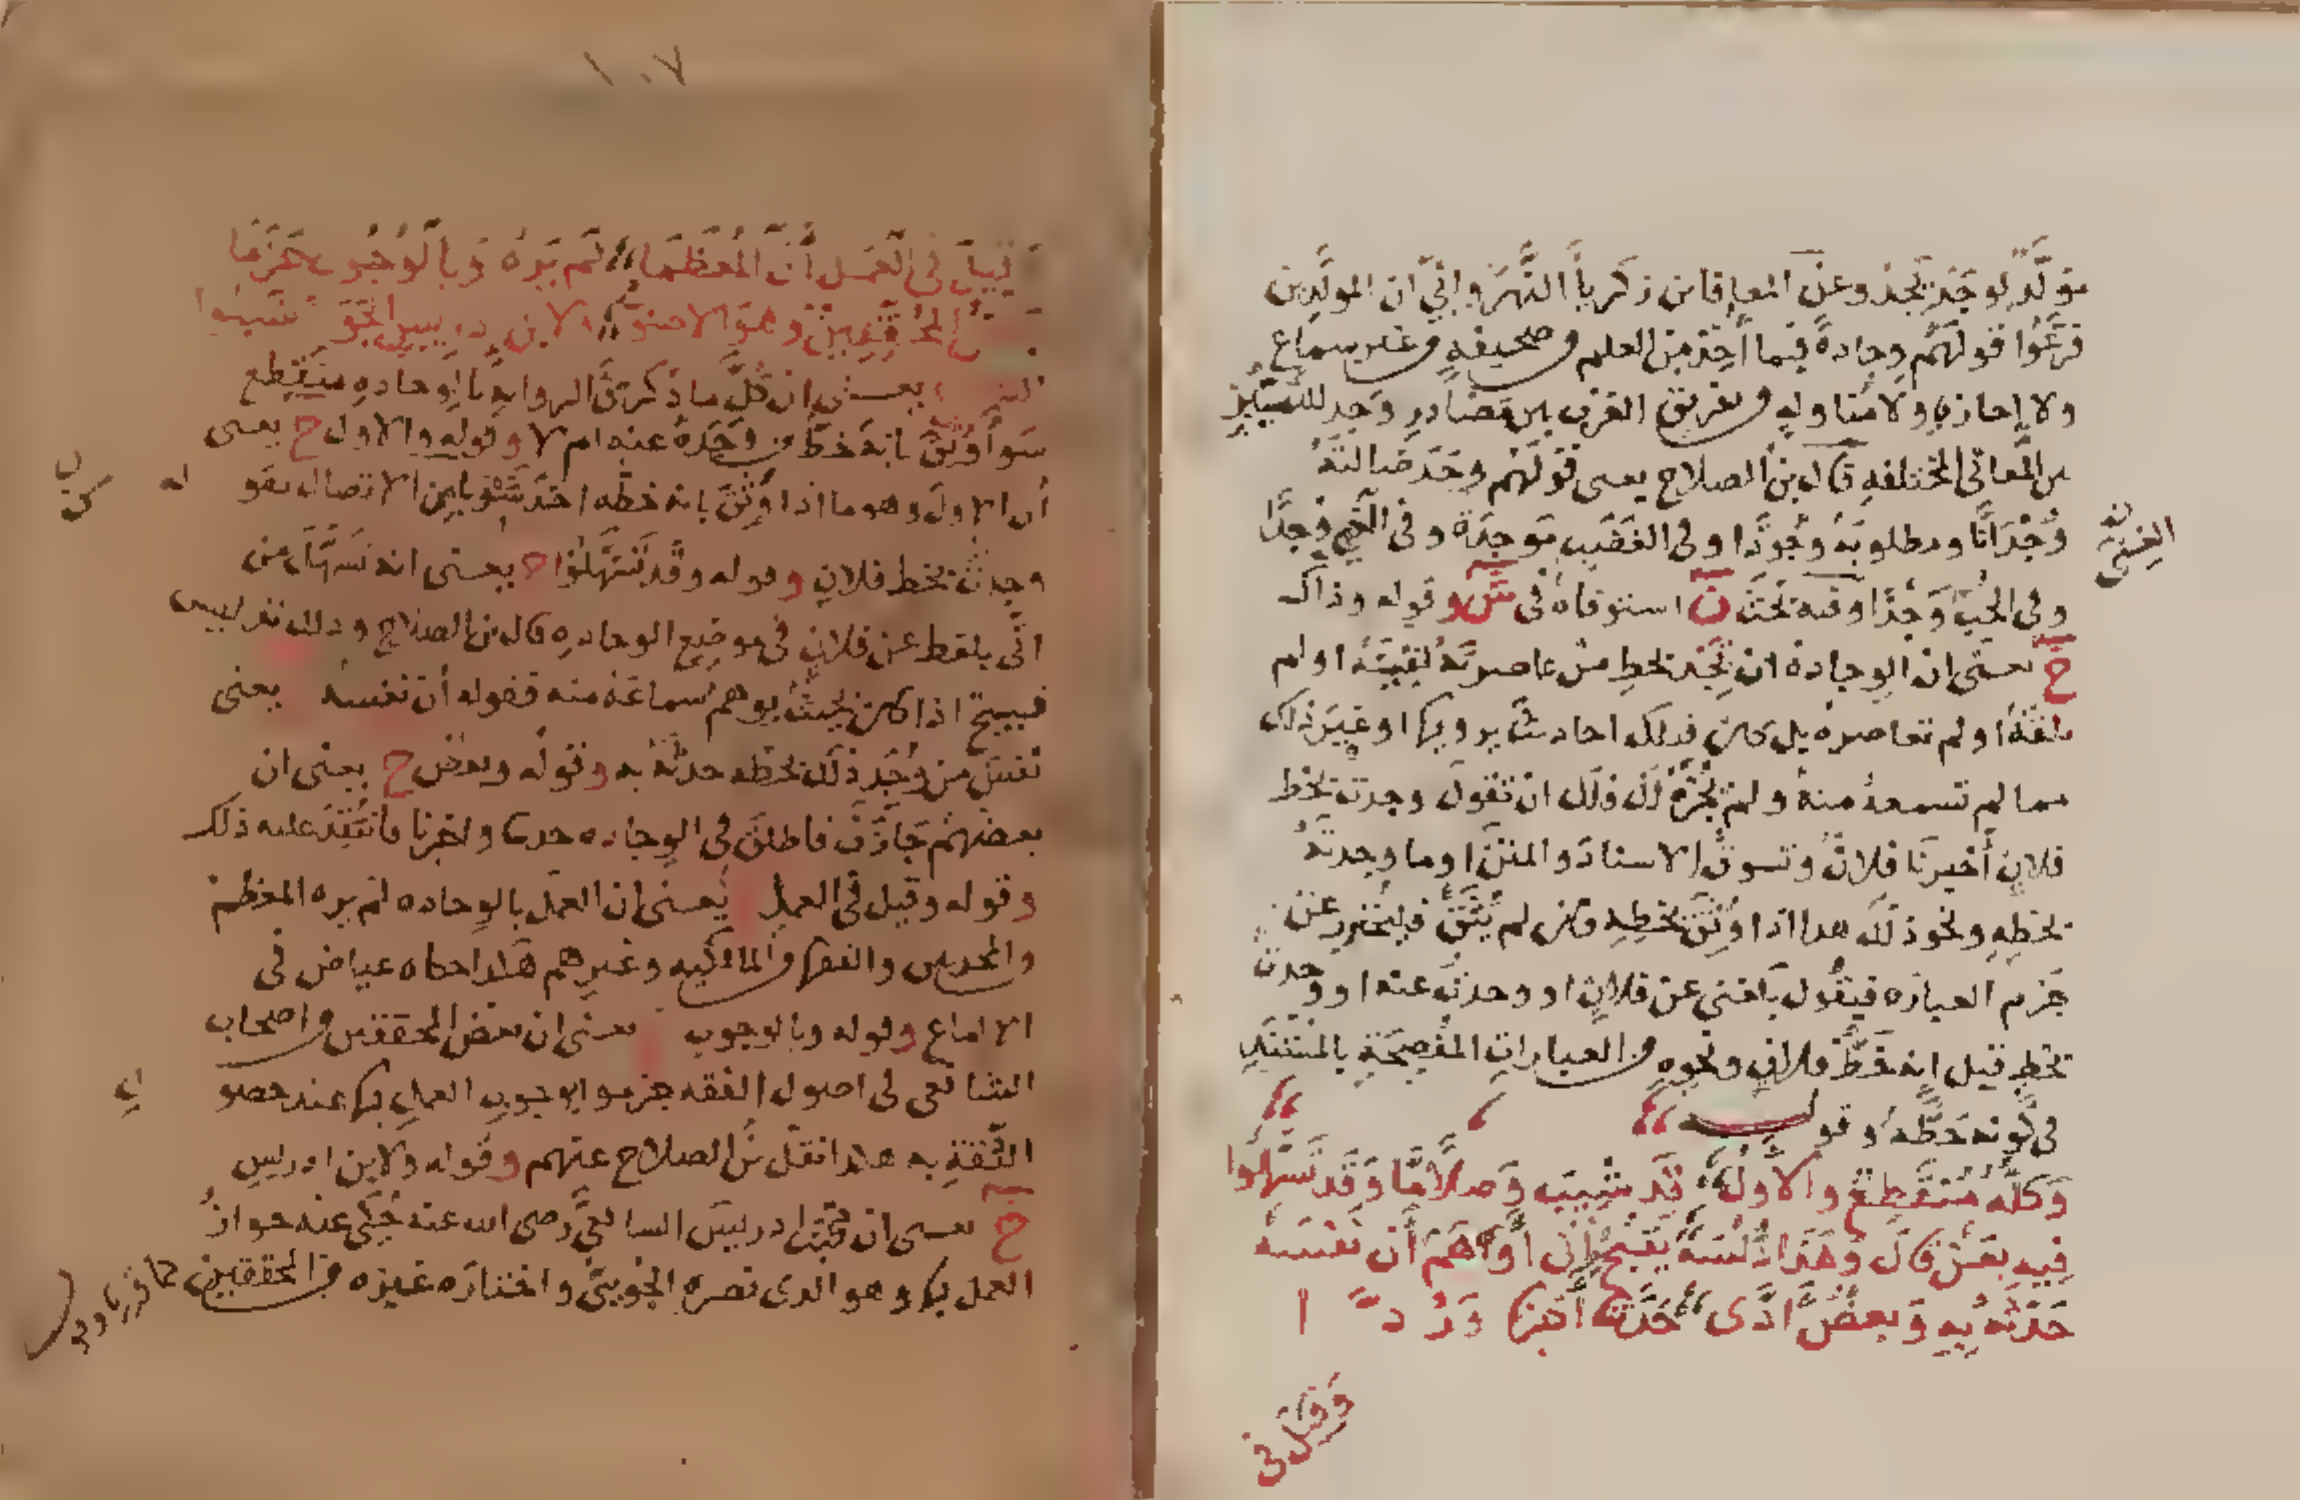 مولد لوجد يجد وعن المعافا بن زكريا النهرواني ان المولدين
فرعوا قولهم وجادة فيما اخذ من العلم من صحيفه من غير سماع
ولا اجازه ولا مناوله من تفريق العرب بين مصادر وجد للتمييز
بين المعاني المختلفه قال بن الصلاح يعنى قولهم وجد ضالته
وجدانا ومطلوبه وجودا وفى الغضب موجدة وفى الغنى وجدا
وفى الحب وجدا وفيه بحث ن استوفاه فى ش وقوله وذاك
ح يعنى ان الوجادة ان تجد بخط من عاصرته لقيته او لم
تلقه او لم تعاصره بل كان قبلك احاديث يرويها او غير ذلك
مما لم تسمعه منه ولم يجزه لك فلك ان تقول وجدت بخط
فلان أخبرنا فلان وتسوق الاسناد والمتن او ما وجدته
بخطه ونحو ذلك هذا اذا وثق بخطه وان لم يثق فليحترز عن
جزم العباره فيقول بلغنى عن فلان او وجدت عنه او وجدت
بخط قيل انه خط فلان ونحوه من العبارات المفصحة بالمستند
فى كونه خطه وقوله
وكله منقطع والاول قد شيب وصلا ما وقد تسهلوا
فيه بعن قال وهذا دلسه يقبح ان أوهم أن نفسه
حدثه به وبعض ادى حدثنا أخبرنا ورد دا
وقيل فى
١٠٧
قيل فى العمل أن المعظما لم يره وبالوجوب جزما
بعض المحققين وهو الاصوب لابن ادريس الجواز نسبوا
يعنى ان كل ما ذكر من الروايه بالوجاده منقطع
سوا وثق بانه خط من وجده عنه ام لا وقوله والاول ح يعنى
أن الاول وهو ما اذا وثق بانه خطه اخذ شوبا من الاتصال لقوله
وجدت بخط فلان وقوله وقد تسهلوا ح يعنى انه تسهل من
اتى بلفظ عن فلان فى موضع الوجاده قال بن الصلاح وذلك تدليس
قبيح اذا كان بحيث يوهم سماعه منه فقوله أن نفسه يعنى
نفس من وجد ذلك بخطه حدثه به وقوله وبعض ح يعنى ان
بعضهم جازف فاطلق فى الوجاده حدثنا واخبرنا فانتقد عليه ذلك
وقوله وقيل فى العمل يعنى ان العمل بالوجاده لم يره المعظم
من المحدثين والفقها من المالكيه وغيرهم هكذا حكاه عياض فى
الالماع وقوله وبالوجوب يعنى ان بعض المحققين من اصحاب
الشافعى فى اصول الفقه جزموا بوجوب العمل بها عند حصول
الثقة به هكذا نقل بن الصلاح عنهم وقوله ولابن ادريس
ح يعنى ان محمد بن ادريس الشافعى رضى الله عنه حكى عنه جواز
العمل بها وهو الذى نصره الجوينى واختاره غيره من المحققين